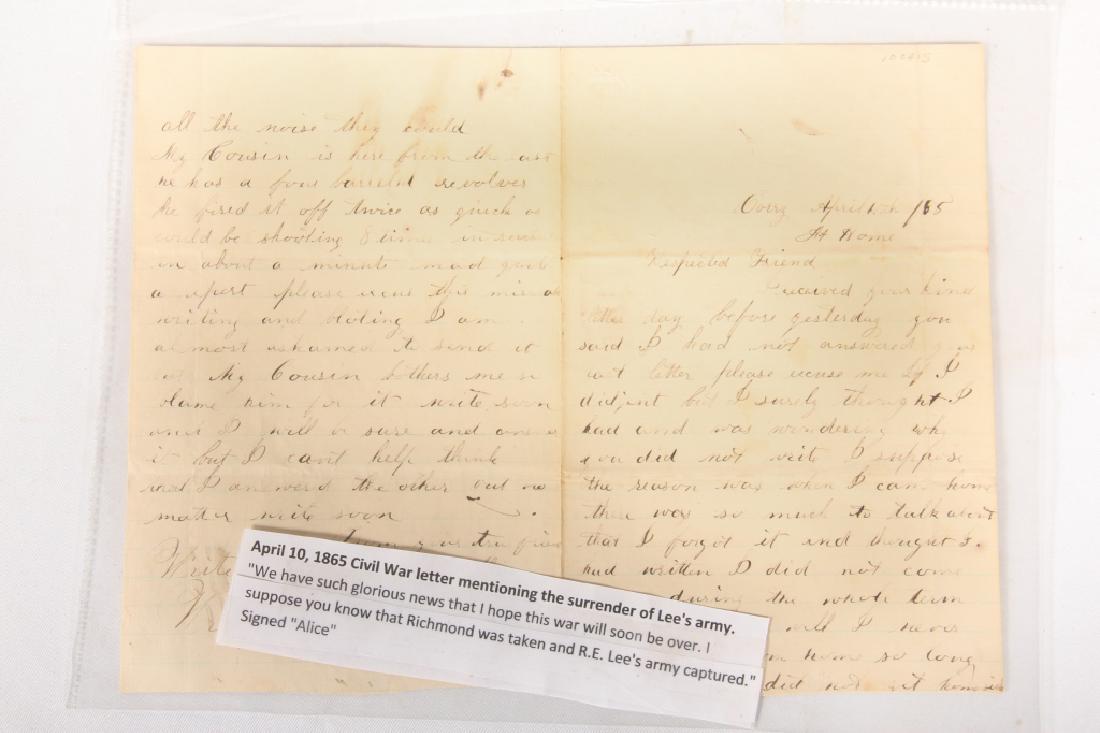 all the noise they could
My Cousin is here from the
he has a four barreled revolver
he fired it off twice as quick as
could be shooting 8 times in
in about a minute mad quite
a report please excuse this
writing and bloting I am
almost ashamed to send it
My Cousin bothers me
blame him for it write soon
and I will be sure and
it but I cant help think
that I answered the other but no
matter write soon
true
Write
100405
April 10th /65
At Home
Respected Friend
Received your kind
letter day before yesterday you
said I had not answered your
last letter please excuse me if I
didjent but I surely thought I
had and was wondering why
you did not write I suppose
the reason was when I came home
there was so much to talk about
that I forgot it and thought I
had written I did not come
during the whole term
well I never
home so long
did not get home
April 10, 1865 Civil War letter mentioning the surrender of Lee's army.
"We have such glorious news that I hope this war will soon be over. I
suppose you know that Richmond was taken and R.E. Lee's army captured."
Signed "Alice"